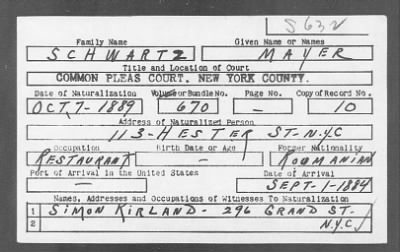 S632
Family Name Given Name or Names
SCHWARTZ MAYER
Title and Location of Court
COMMON PLEAS COURT, NEW YORK COUNTY.
Date of Naturalization Volume or Bundle No. Page No. Copy of Record No.
OCT, 7- 1889 670 — 10
Address of Naturalized Person
113- HESTER ST- N.Y.C
Occupation Birth Date or Age Former Nationality
RESTAURANT — ROUMANIAN
Port of Arrival in the United States Date of Arrival
— SEPT-1-1884
Names, Addresses and Occupations of Witnesses To Naturalization
1 SIMON KIRLAND- 296 GRAND ST-
2 N.Y.C.